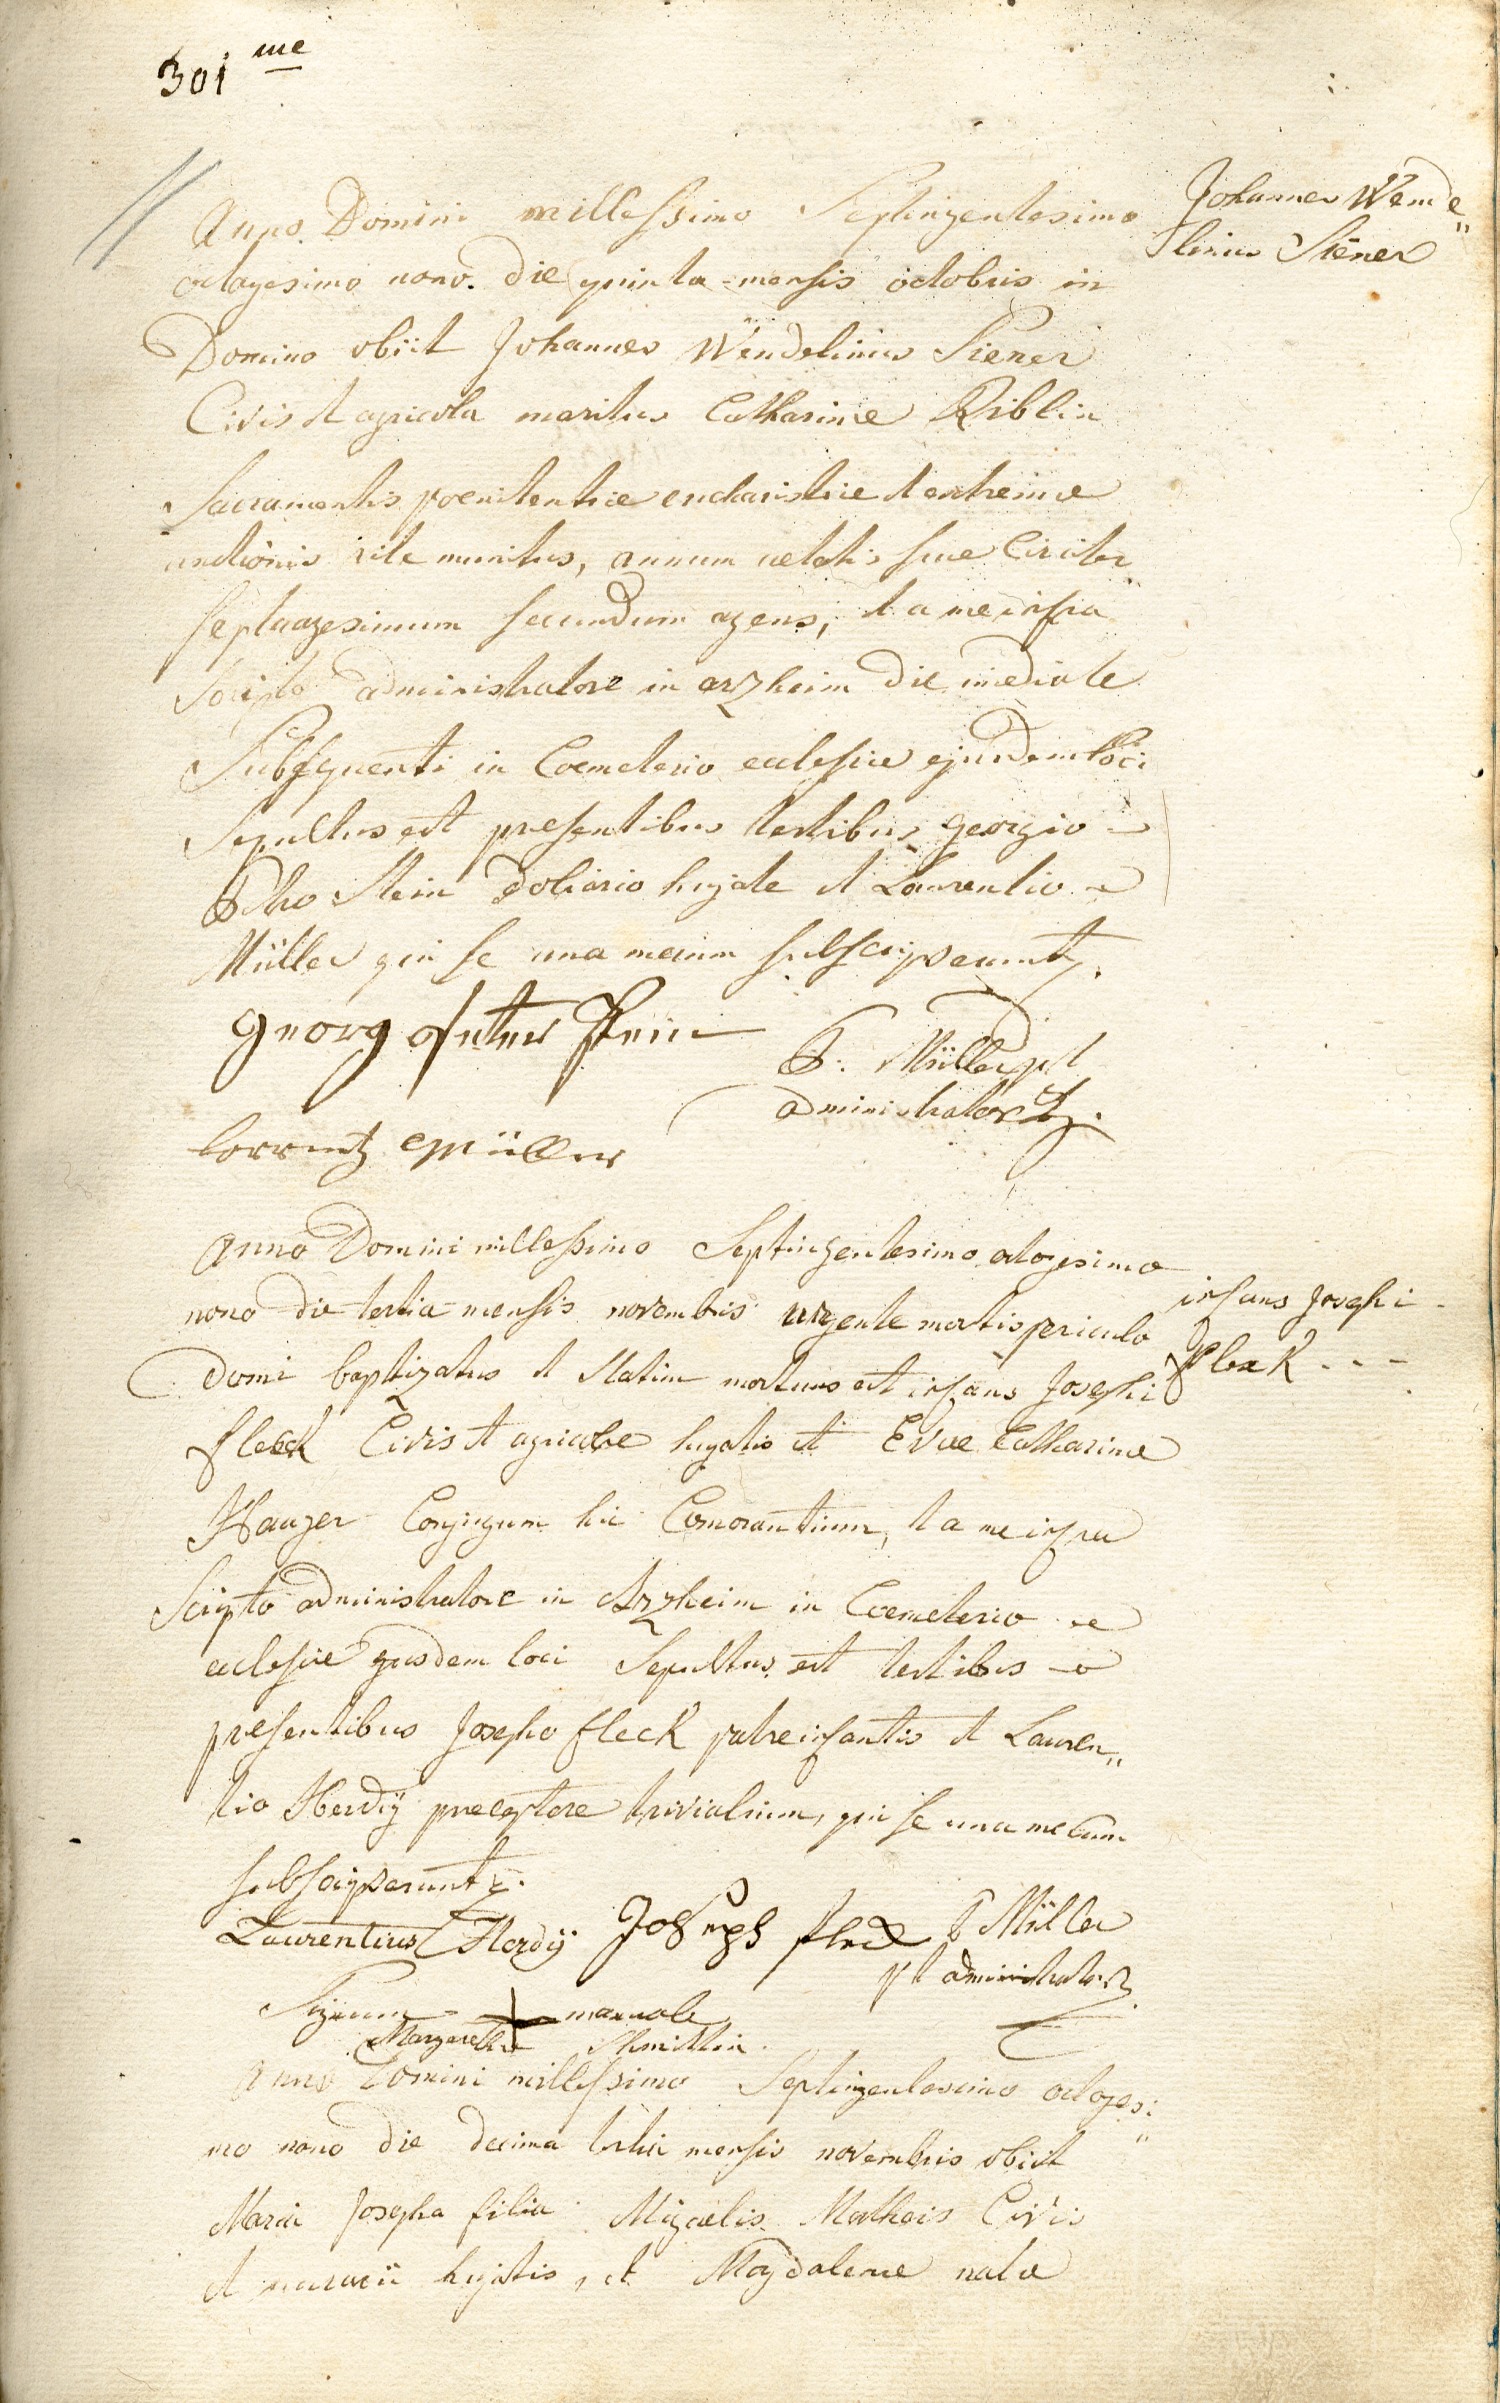 301 me
Anno Domini millessimo Septingentesimo
octagesimo nono. die quinta mensis octobris in
Domino obiit Johannes Wendelinus Siener
Civis et agricola maritus Catharinæ Riblin
Sacramentis poenitentiæ eucharistiæ et extremæ
unctionis rite munitus, annum aetatis suæ Circiter
septuagesimum secundum agens, et a me infra
Scripto administratore in arzheim die imediate
Subsequenti in Coemeterio ecclesiæ ejusdem loci
Sepultus est presentibus testibus georgio
Petro Stein doliario hujate et Laurentio
Müller qui se una mecum subscripserunt.
Johannes Wende„
linus Siener
Georg Peter Stein
P. Müller pt
administrator
Lorentz Müller
Anno Domini millessimo Septingentesimo octogesimo
nono die tertia mensis novembris urgente mortis periculo
domi baptizatus et statim mortuus est infans Josephi
fleck Civis et agricolæ hujatis et Evae Catharinæ
Hauzer Conjugum hic Comorantium, et a me infra
Scripto administratore in Arzheim in Coemeterio
ecclesiæ ejusdem loci Sepultus est testibus
presentibus Josepho fleck patre infantis et Lauren„
tio Herdÿ preceptore trivialium, qui se una mecum
subscripserunt.
infans Josephi
fleck - - -
Laurentius Herdÿ Joseph fleck P Müller
pt administrator
Signum + manuale
Margarethæ Shmittin.
Anno Domini millessimo Septingentesimo octogesi„
mo nono die decima tertia mensis novembris obiit
Maria Josepha filia Migaelis Matheis Civis
et hujatis, et Magdalenæ natæ